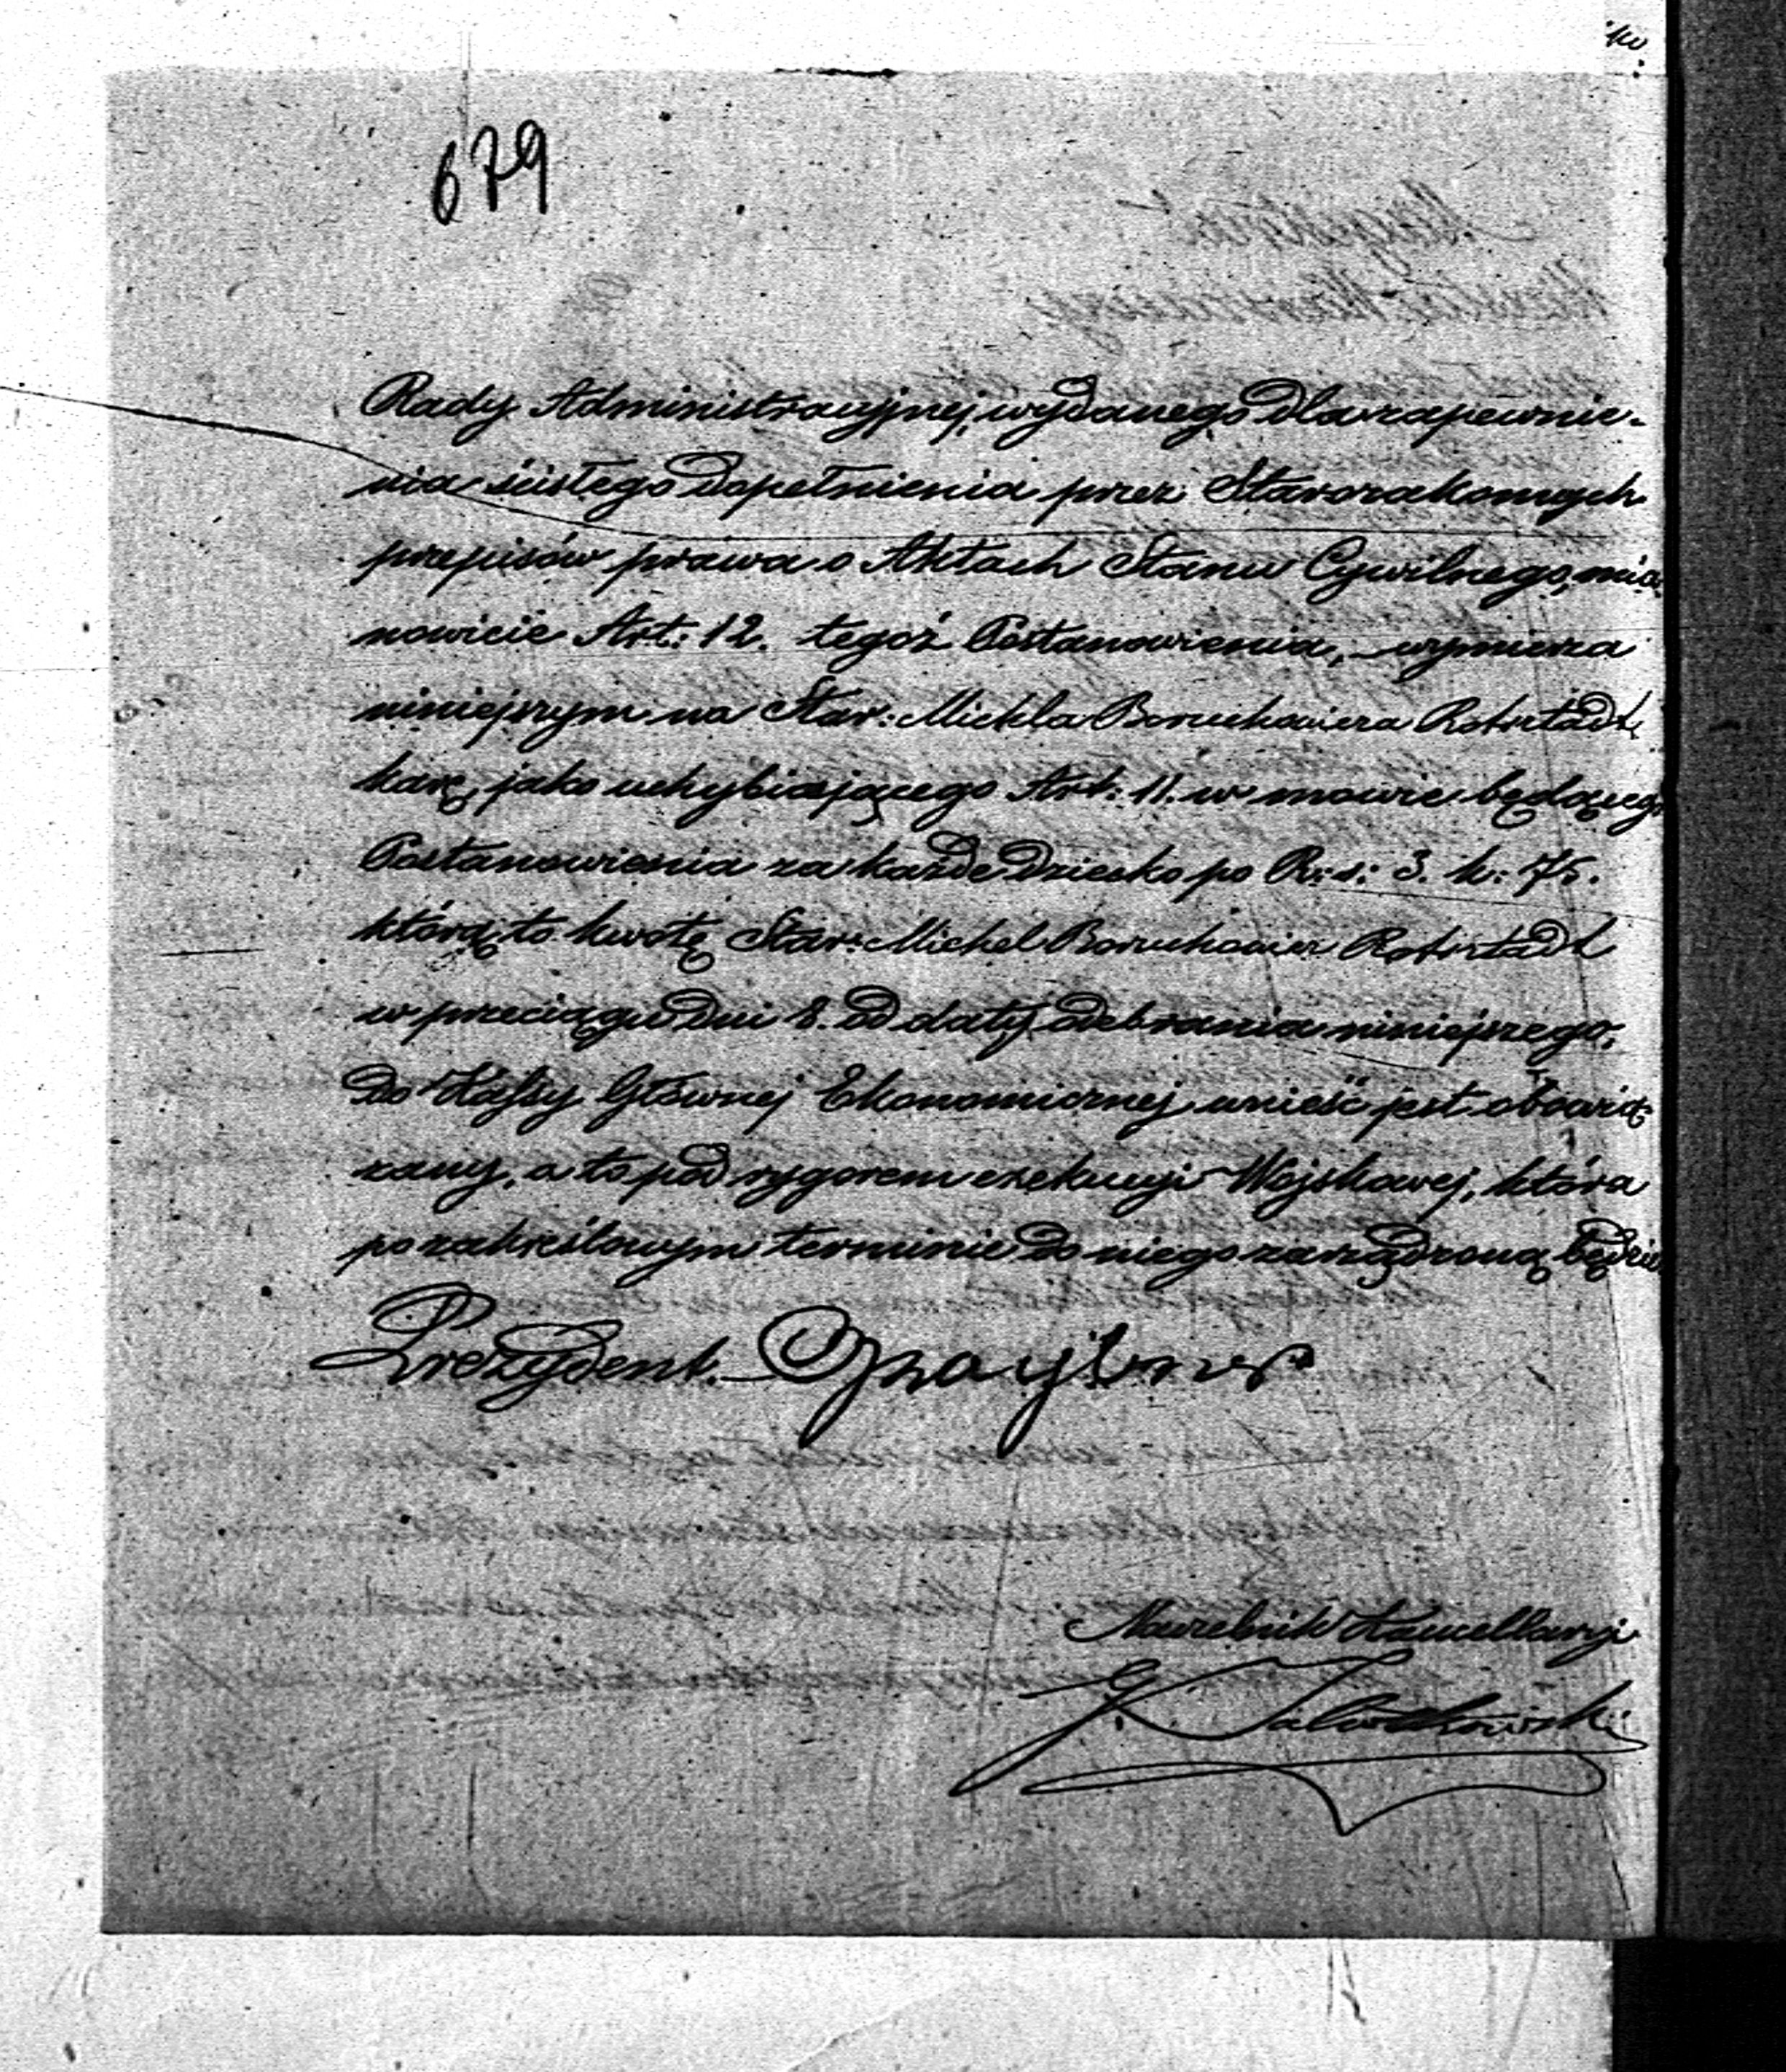 679
Rady Administracyjnej, wydanego dla zapewnie-
nia ścisłego dopełnienia przez Starozakonnych
przepisów prawa o Aktach Stanu Cywilnego, mia-
nowicie Art: 12. tegoż Postanowienia, wymierza
niniejszym na Star: Michla Boruchowicza Rotsztadt
karę, jako uchybiającego Art: 11. w mowie będącego
Postanowienia za każde dziecko po R: s: 3. k: 75.
którą to kwotę Star: Michel Boruchowicz Rotsztadt
w przeciągu dni 8. od daty odebrania niniejszego,
do Kassy Głównej Ekonomicznej wnieść jest obowią-
zany, a to pod rygorem exekucyi Wojskowej, która
po zakreślowym terminie do niego zarządzoną będzie
Prezydent.
Naczelnik Kancellaryi